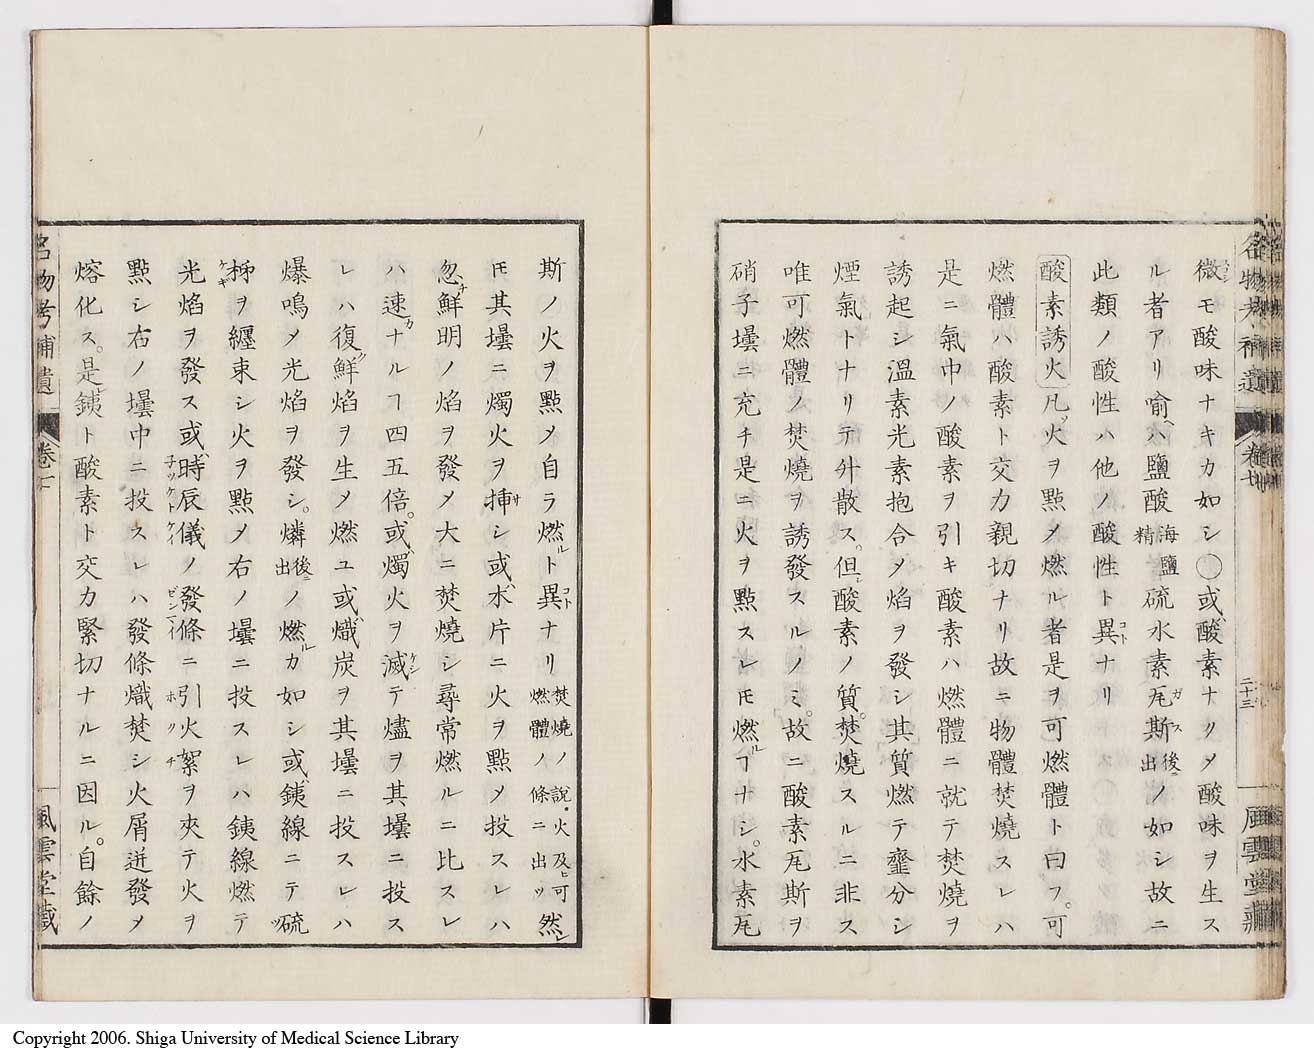 名物考補遺 卷七 二十三 風雲堂藏
微モ酸味ナキカ如シ〇或ハ酸素ナクメ酸味ヲ生ス
ル者アリ喩ヘハ鹽酸海鹽精硫水素瓦斯ガス後ニ出ノ如シ故ニ
此類ノ酸性ハ他ノ酸性ト異コトナリ
酸素誘火 凡ソ火ヲ點メ燃ル者是ヲ可燃體ト曰フ。可
燃體ハ酸素ト交力親切ナリ故ニ物體焚燒スレハ
是ニ氣中ノ酸素ヲ引キ酸素ハ燃體ニ就テ焚燒ヲ
誘起シ溫素光素抱合メ焰ヲ發シ其質燃テ韲分シ
煙氣トナリテ外散ス。但シ酸素ノ質。焚燒スルニ非ス
唯可燃體ノ焚燒ヲ誘發スルノミ。故ニ酸素瓦斯ヲ
硝子壜ニ充チ是ニ火ヲ點スレㄷ燃ルヿナシ。水素瓦
斯ノ火ヲ點メ自ラ燃ルト異コトナリ焚燒ノ說・火及ヒ可燃體ノ條ニ出ッ然レ
ㄷ其壜ニ燭火ヲ揷サシ或ハ木片ニ火ヲ點メ投スレハ
忽チ鮮明ノ焰ヲ發メ大ニ焚燒シ尋常燃ルニ比スレ
ハ速カナルヿ四五倍。或ハ燭火ヲ滅ケシテ燼ヲ其壜ニ投ス
レハ復タ鮮焰ヲ生メ燃ユ或ハ熾炭ヲ其壜ニ投スレハ
爆鳴メ光焰ヲ發シ。燐後ニ出ノ燃ルカ如シ或ハ銕線ニテ硫ッ
柹ケキヲ纏束シ火ヲ點メ右ノ壜ニ投スレハ銕線燃テ
光焰ヲ發ス或ハ時辰儀子ツケトケイノ發條ゼンマイニ引火絮ホクチヲ夾テ火ヲ
點シ右ノ壜中ニ投スレハ發條熾焚シ火屑迸發メ
熔化ス。是レ銕ト酸素ト交力緊切ナルニ因ル。自餘ノ
名物考補遺 卷七 風雲堂藏
Copyright 2006. Shiga University of Medical Science Library